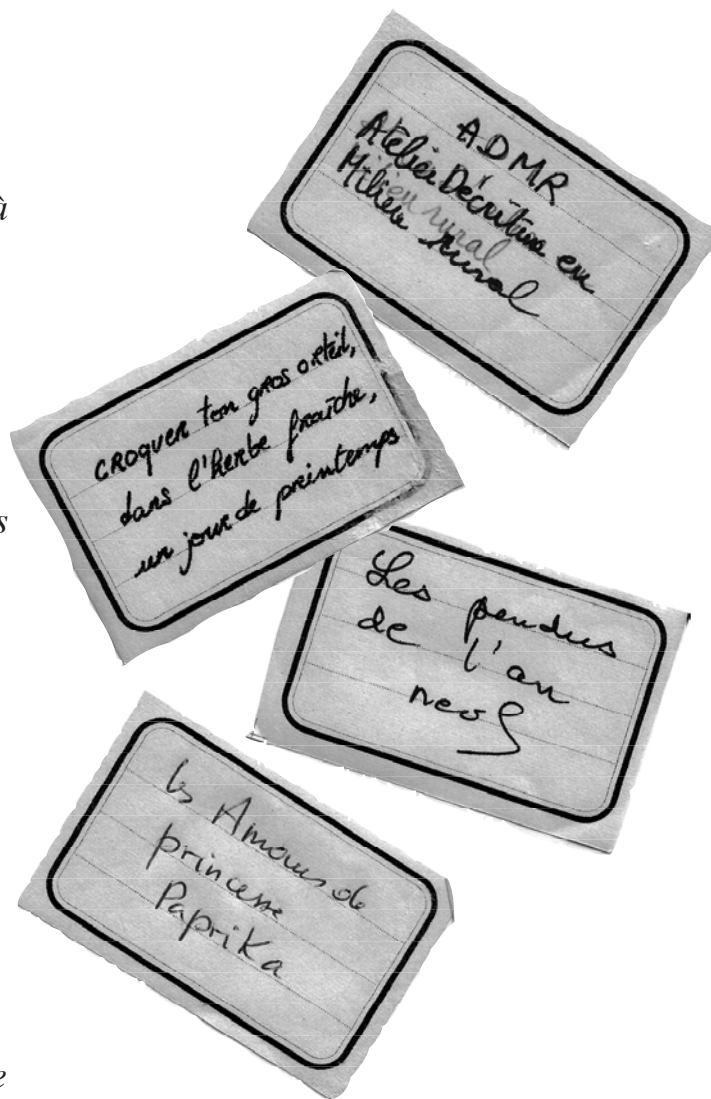 à
ADMR
Atelier Décriture en
Milieu rural
croquer ton gros orteil,
dans l'herbe fraîche,
un jour de printemps
s
Les pendus
de l'an
neuf
Les Amours de
princesse
Paprika
e